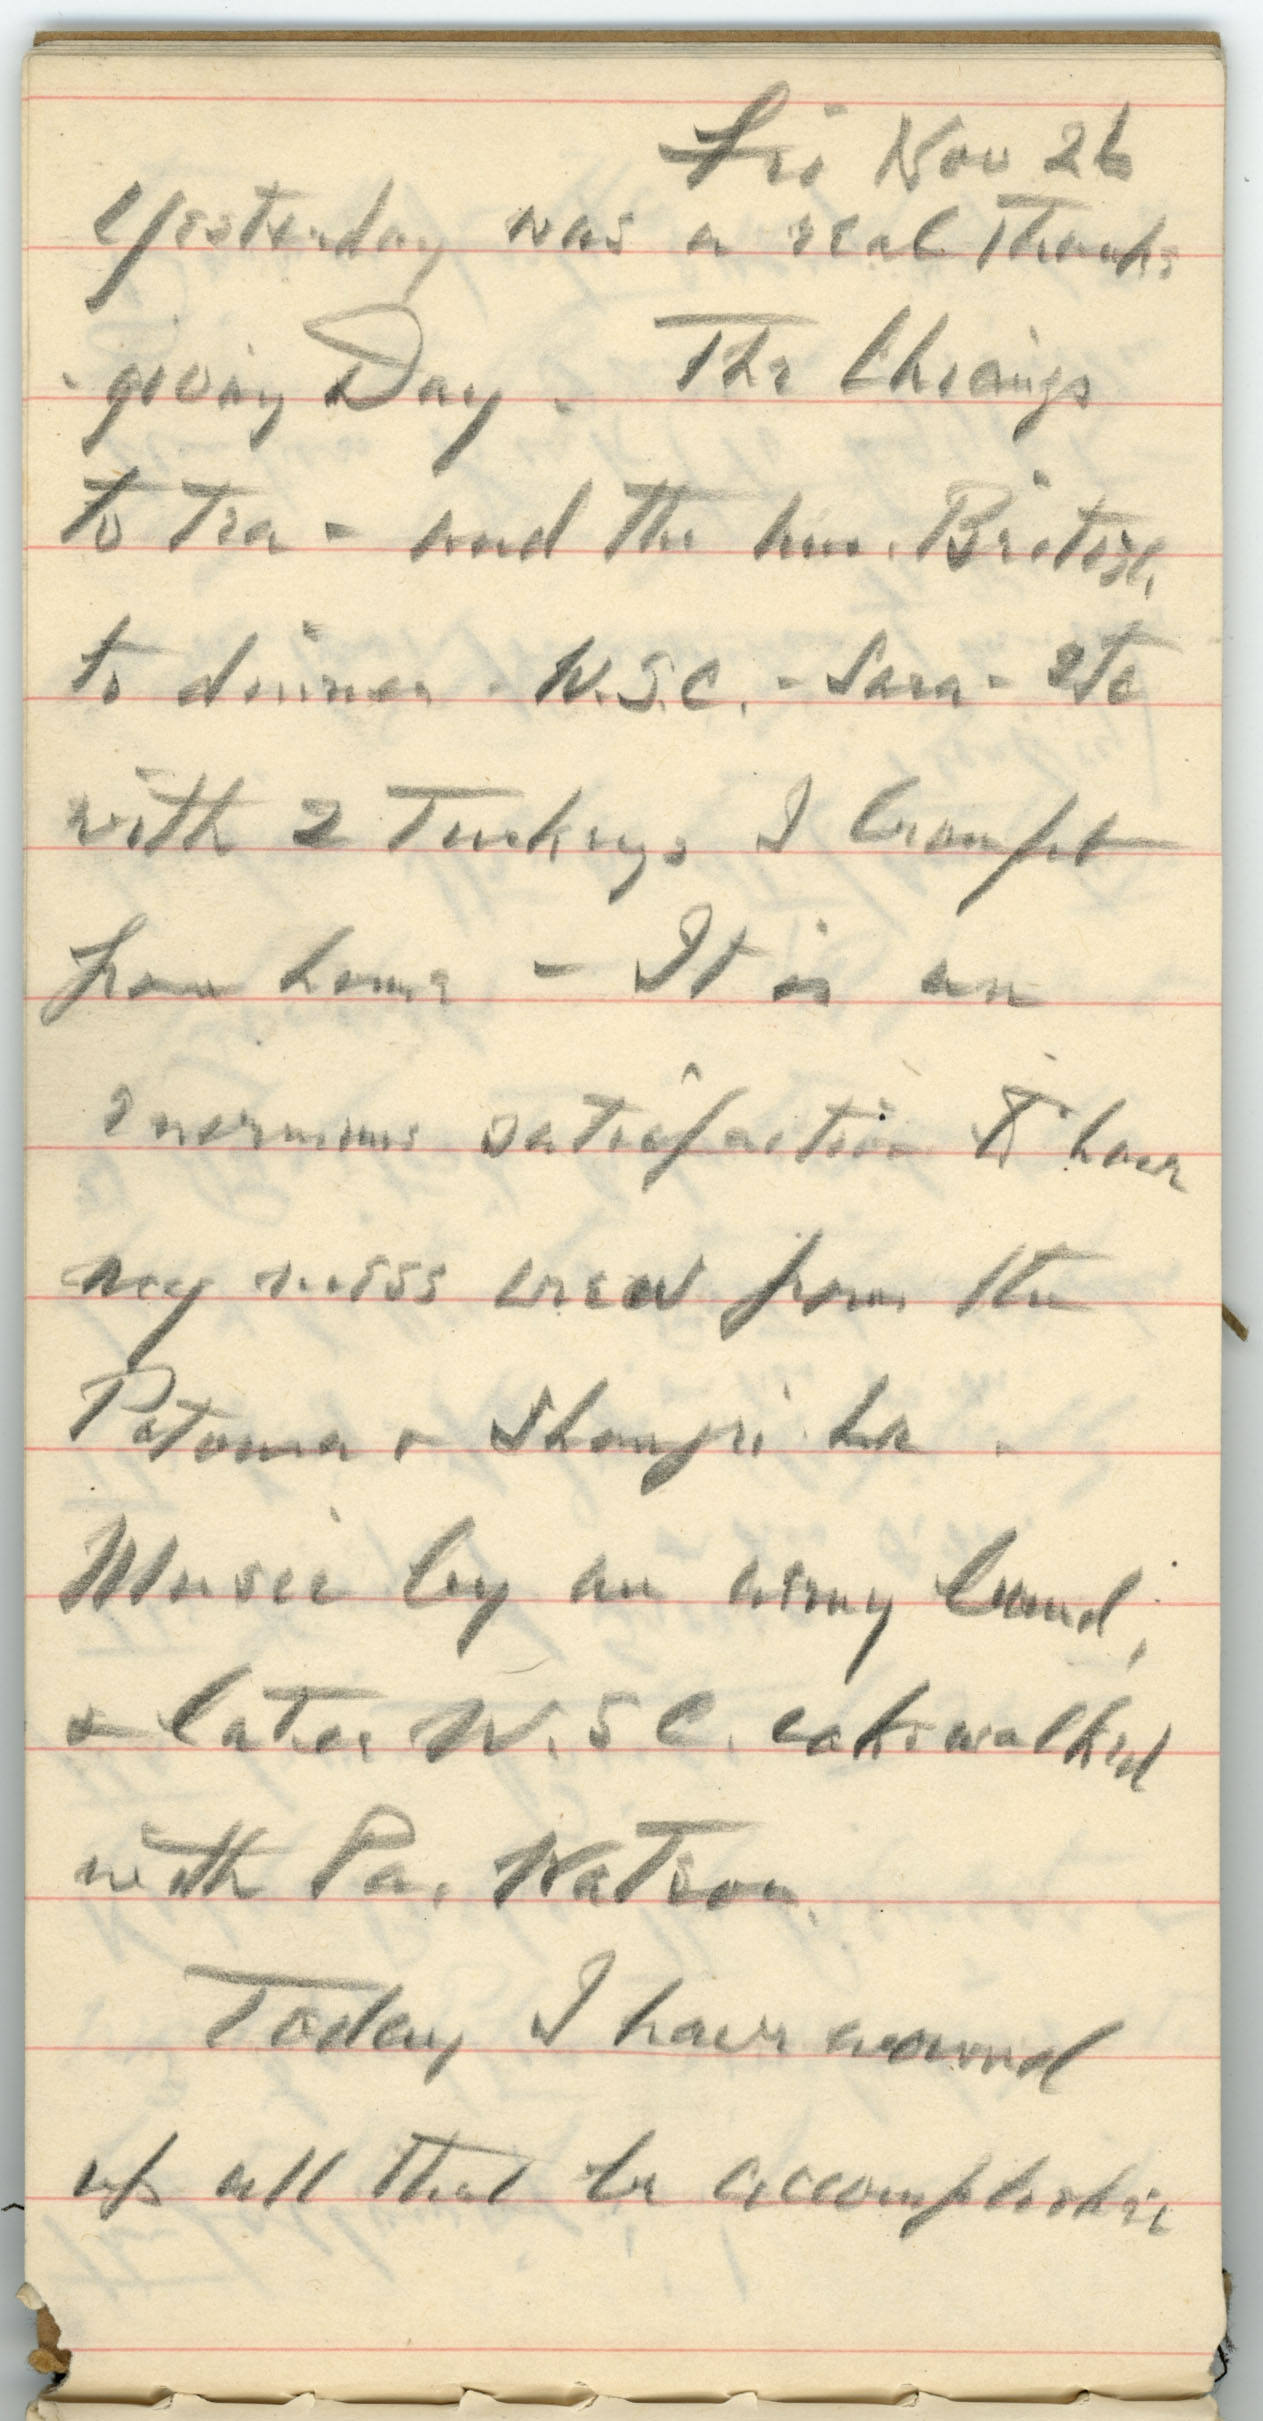 Fri Nov 26
Yesterday was a real Thanks
-giving Day. The Chiangs
to Tea - and the hus. British
to dinner - W.S.C. - Sara - etc
with 2 Turkeys I brought
from home - It is an
enormous satisfaction to have
my mess crew from the
Potomac & Shangri La.
Music by an army band,
& later W.S.C. cakewalked
with Pa. Watson.
Today I have wound
up all that be accomplishe